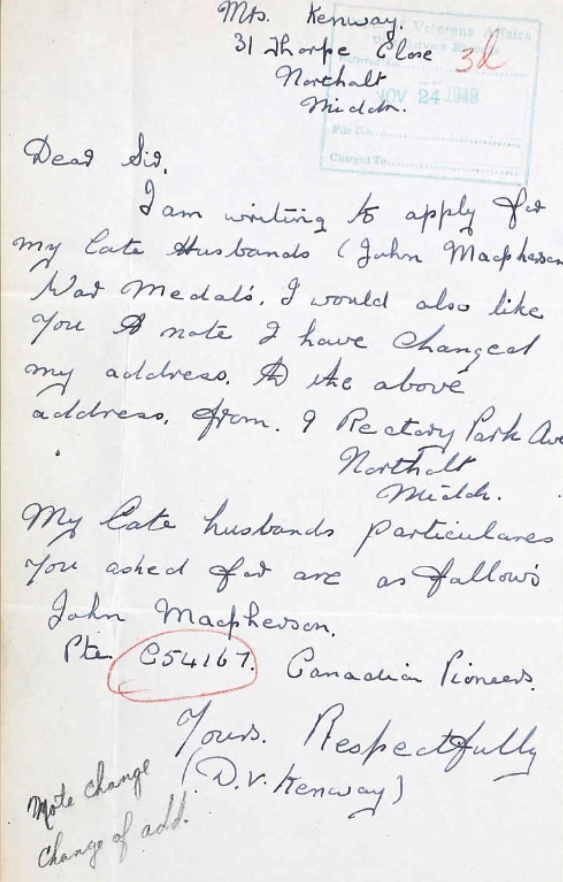 Mrs. Kenway.
31 Thorpe Close
Northalt
Middx.
Veterans Affairs
War Service Records
Referred To
3d
NOV 24 1949
File No.
Charged To
Dear Sir,
I am writing to apply for
my late Husbands (John Macpherson
War Medals. I would also like
you to note I have changed
my address. to the above
address. from. 9 Rectory Park Ave
Northalt
Middx.
My late husbands particulares
you asked for are as follows
John Macpherson.
Pte. C54167. Canadian Pioneers.
Yours. Respectfully
(D.V. Kenway)
Note change
change of add.